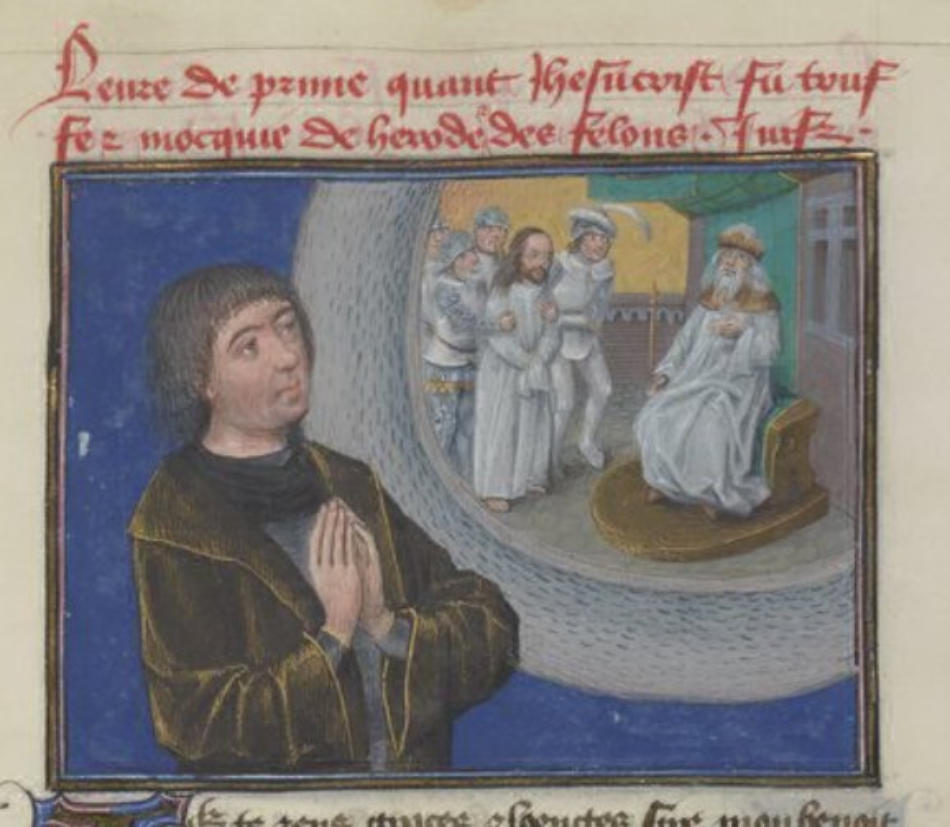 Leure de prime quant Jhesucrist fu touf
fez mocquie de herode des felons. Juifz.
te rens graces